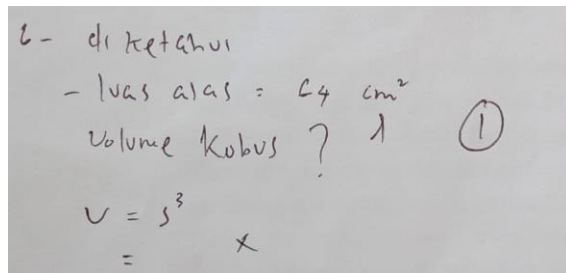 6- diketahui
- luas alas = 64 cm² 1
Volume kubus ? ①
V = s³
= ×